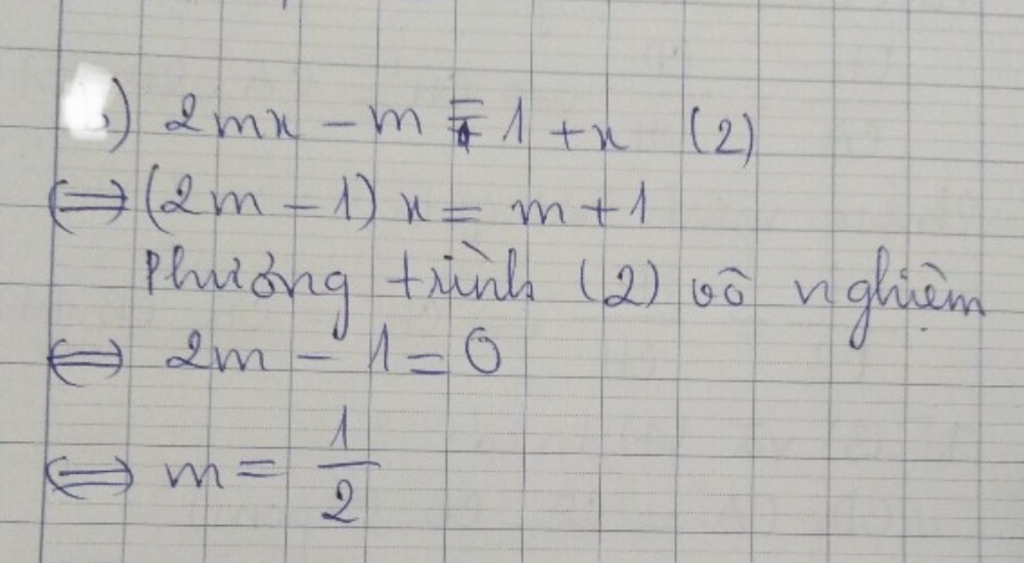 b) 2mx - m = 1 + x (2)
⇔ (2m - 1) x = m + 1
Phương trình (2) vô nghiệm
⇔ 2m - 1 = 0
⇔ m = 1/2